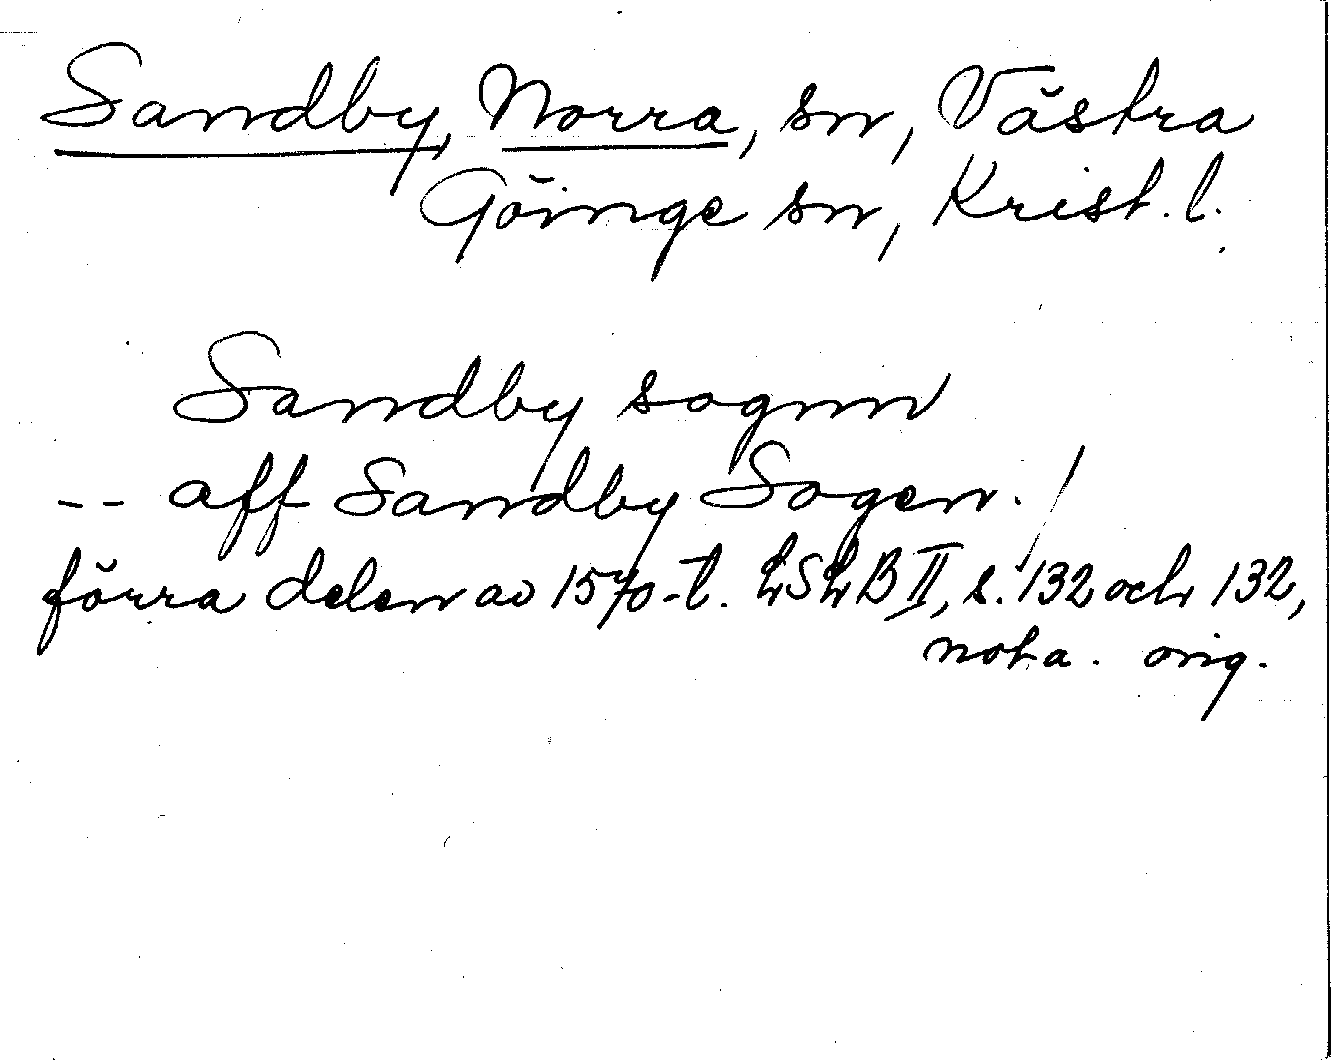 Sandby, Norra, sn, Västra
Göinge sn, Krist. l.
Sandby sognn
-- aff Sandby Sogen.
förra delen av 1570-t. LSLB II, s. 132 och 132,
nota. orig.